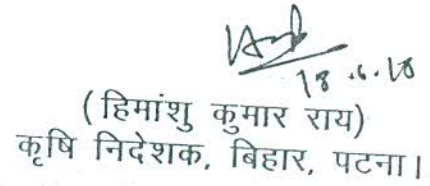 18.6.18
(हिमांशु कुमार राय)
कृषि निदेशक, बिहार, पटना।